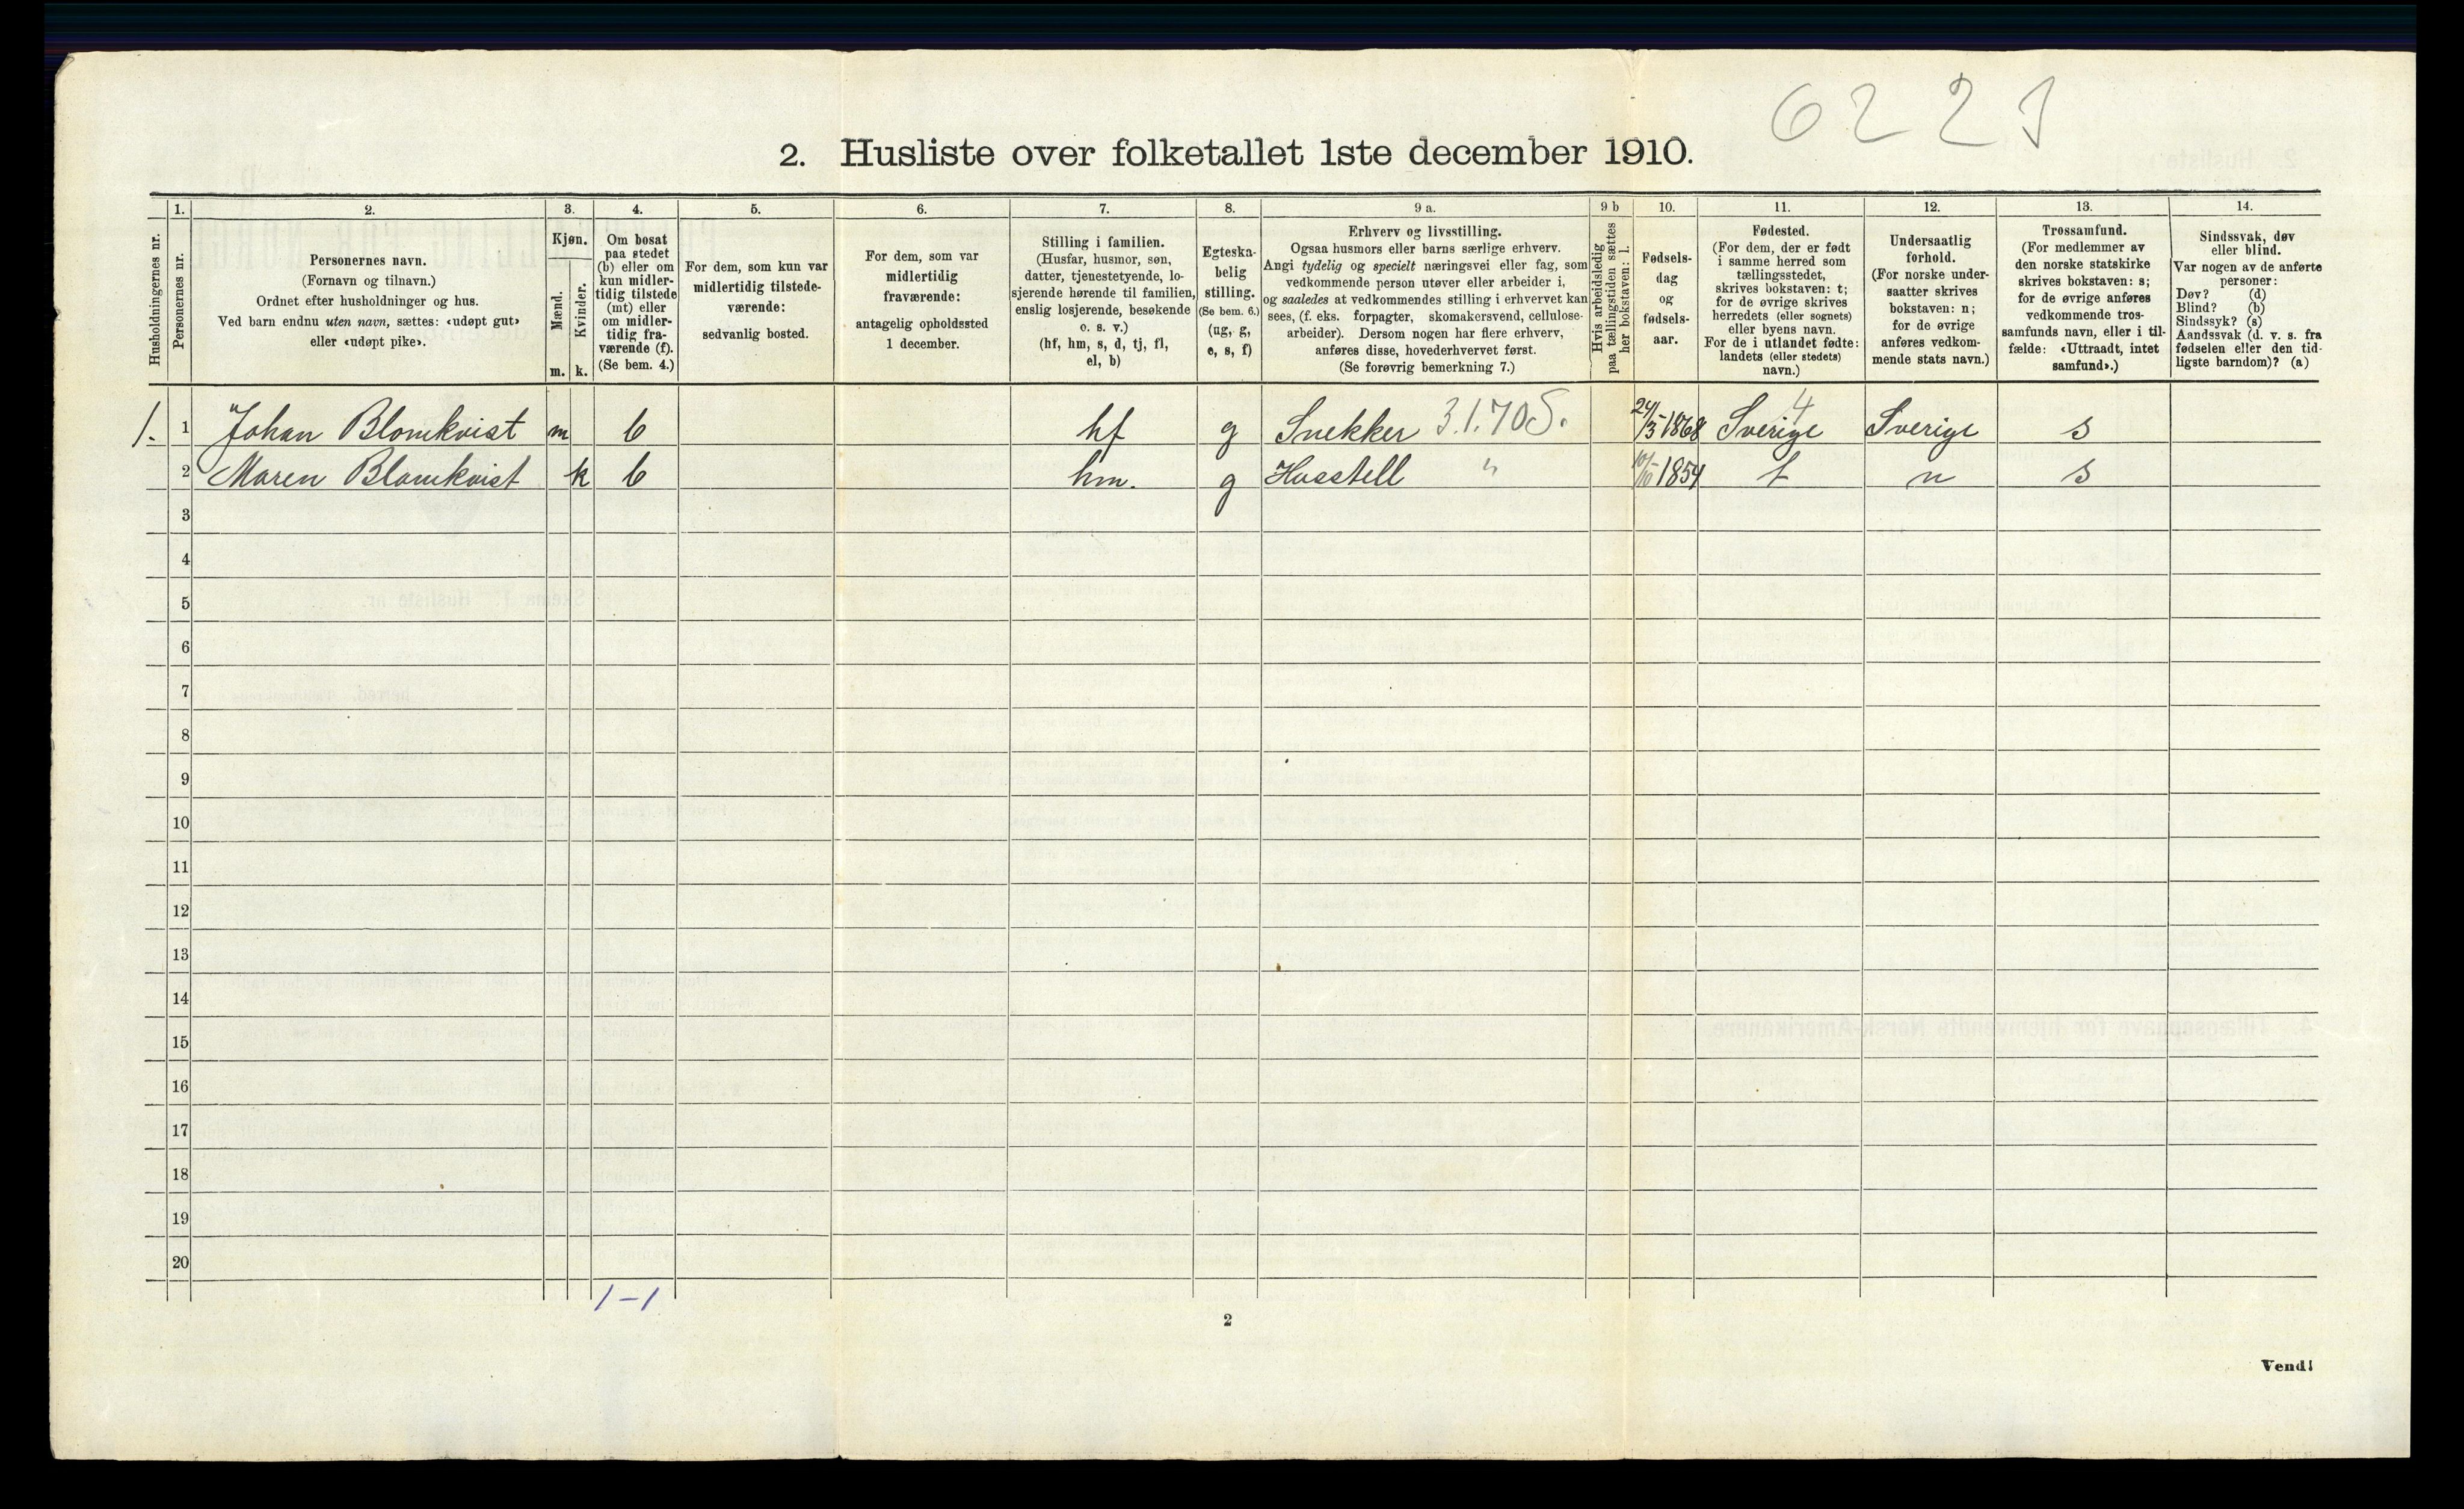 6221
2. Husliste over folketallet 1ste december 1910.
Husholdningernes nr.
1.
Personernes nr.
2.
Personernes navn.
(Fornavn og tilnavn.)
Ordnet efter husholdninger og hus.
Ved barn endnu uten navn, sættes: «udøpt gut»
eller «udøpt pike».
3.
Kjøn.
Mænd.
Kvinder.
m. k.
4.
Om bosat
paa stedet
(b) eller om
kun midler-
tidig tilstede
(mt) eller
om midler-
tidig fra-
værende (f).
(Se bem. 4.)
5.
For dem, som kun var
midlertidig tilstede-
værende:
sedvanlig bosted.
6.
For dem, som var
midlertidig
fraværende:
antagelig opholdssted
1 december.
7.
Stilling i familien.
(Husfar, husmor, søn,
datter, tjenestetyende, lo-
sjerende hørende til familien,
enslig losjerende, besøkende
o. s. v.)
(hf, hm, s, d, tj, fl,
el, b)
8.
Egteska-
belig
stilling.
(Se bem. 6.)
(ug, g,
e, s, f)
9 a.
Erhverv og livsstilling.
Ogsaa husmors eller barns særlige erhverv.
Angi tydelig og specielt næringsvei eller fag, som
vedkommende person utøver eller arbeider i,
og saaledes at vedkommendes stilling i erhvervet kan
sees, (f. eks. forpagter, skomakersvend, cellulose-
arbeider). Dersom nogen har flere erhverv,
anføres disse, hovederhvervet først.
(Se forøvrig bemerkning 7.)
9 b
Hvis arbeidsledig
paa tællingstiden sættes
her bokstaven: l.
10.
Fødsels-
dag
og
fødsels-
aar.
11.
Fødested.
(For dem, der er født
i samme herred som
tællingsstedet,
skrives bokstaven: t;
for de øvrige skrives
herredets (eller sognets)
eller byens navn.
For de i utlandet fødte:
landets (eller stedets)
navn.)
12.
Undersaatlig
forhold.
(For norske under-
saatter skrives
bokstaven: n;
for de øvrige
anføres vedkom-
mende stats navn.)
13.
Trossamfund.
(For medlemmer av
den norske statskirke
skrives bokstaven: s;
for de øvrige anføres
vedkommende tros-
samfunds navn, eller i til-
fælde: «Uttraadt, intet
samfund».)
14.
Sindssvak, døv
eller blind.
Var nogen av de anførte
personer:
Døv? (d)
Blind? (b)
Sindssyk? (s)
Aandssvak (d. v. s. fra
fødselen eller den tid-
ligste barndom)? (a)
1. 1 Johan Blomkvist m b hf g Snekker 3.1.705. 24/3-1868 Sverige 4 Sverige s
2 Maren Blomkvist k b hm. g Husstell " 10/10-1854 t n s
3
4
5
6
7
8
9
10
11
12
13
14
15
16
17
18
19
20
1-1
2
Vend!